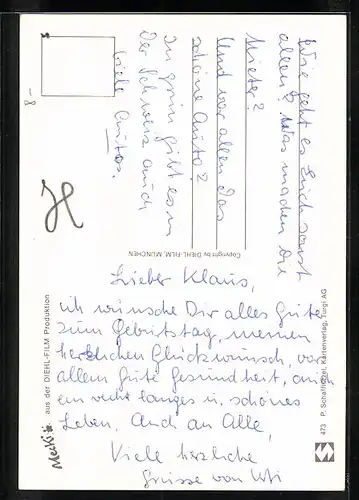 Lieber Klaus,
ich wünsche Dir alles Gute
zum Geburtstag, meinen
herzlichen Glückwunsch, vor
allem gute Gesundheit, auch
ein recht langes u. schönes
Leben. Auch an Alle,
Viele herzliche
Grüsse von
Wie geht es Euch sonst
allen? Was machen die
Mieter?
Und vor allem das
schöne Auto?
In grün gibt es in
Der Schweiz auch
viele Autos.
8.-
Mecki
aus der DIEHL-FILM Produktion
Copyright by DIEHL-FILM, MÜNCHEN
473 P. Schaffhützel, Kartenverlag, Turgi AG